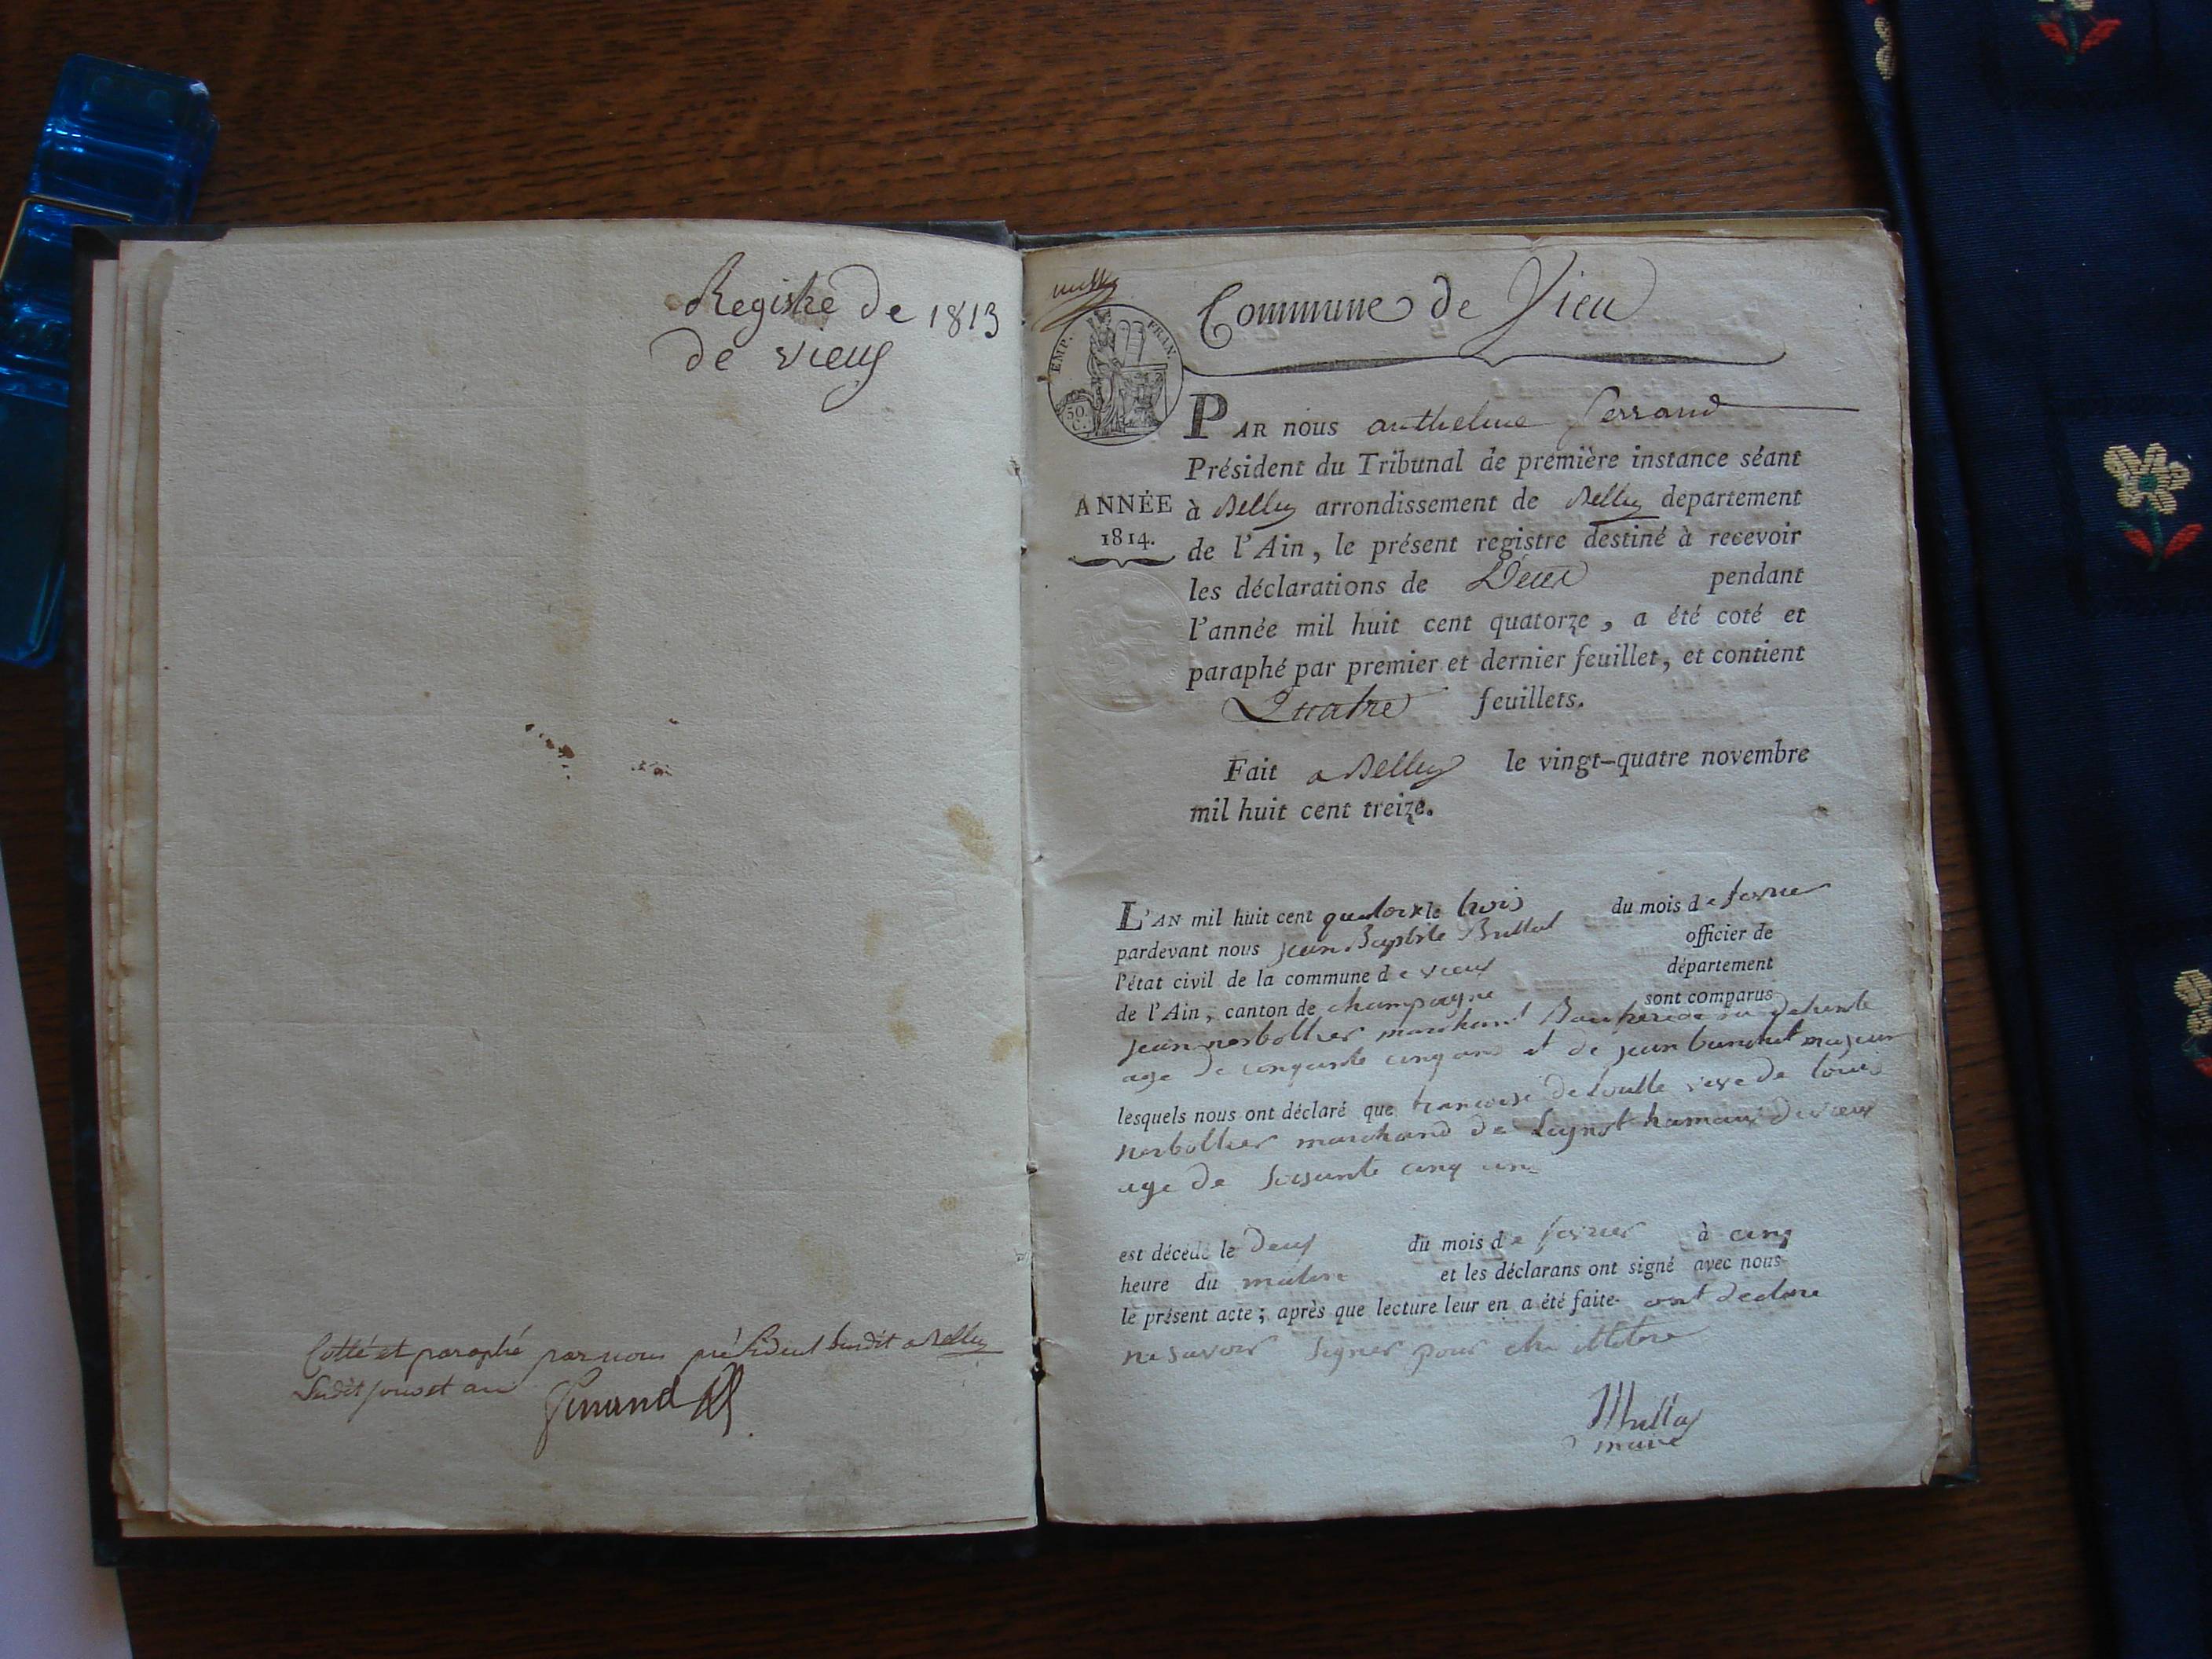 Registre de 1813
de vieu
Cotté et paraphé par nous président susdit a Belley
Susdit jour et an
Ferrand
Commune de Vieu
EMP. FRAN.
50
C.
PAR nous anthelme ferrand
Président du Tribunal de première instance séant
ANNÉE
1814.
à Belley arrondissement de Belley departement
de l'Ain, le présent registre destiné à recevoir
les déclarations de Décès pendant
l'année mil huit cent quatorze, a été coté et
paraphé par premier et dernier feuillet, et contient
Quatre feuillets.
Fait a Belley le vingt-quatre novembre
mil huit cent treize.
L'AN mil huit cent quatorze le trois du mois de fevrie
pardevant nous jean Baptiste officier de
l'état civil de la commune de vieux département
de l'Ain, canton de champagne sont comparus
jean nerbollier marchant
age de cinquante cinq ans et de jean majeur
lesquels nous ont déclaré que francoise veve de louis
nerbollier marchand de hamaux de vieux
age de soisante cinq ans
est décédé le deux du mois de fevrier à cinq
heure du matin et les déclarans ont signé avec nous
le présent acte; après que lecture leur en a été faite ont declare
ne savoir signer pour
maire